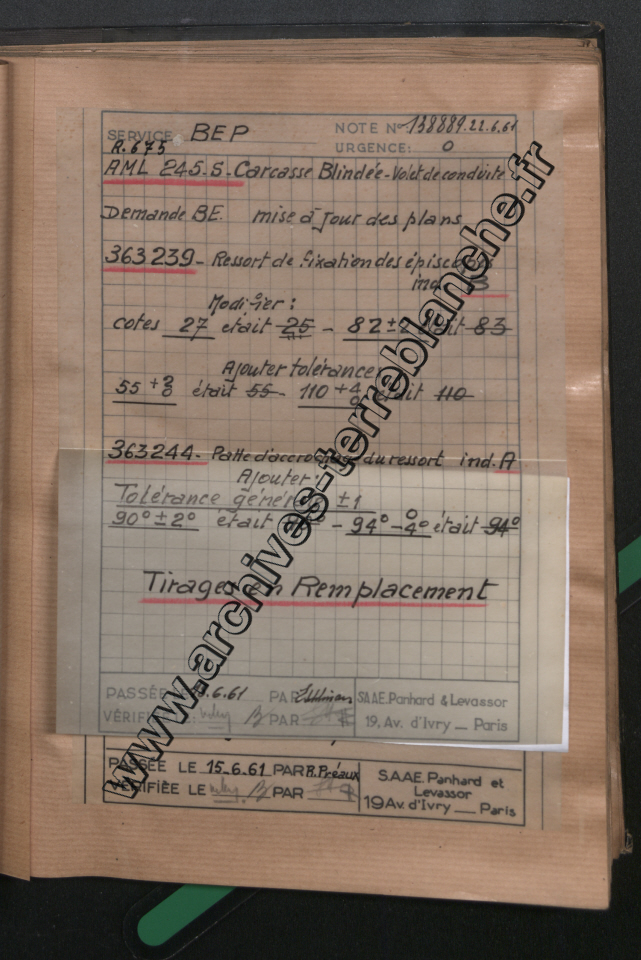 SERVICE BEP NOTE N° 138889.22.6.61
R.675 URGENCE: O
AML 245.S. Carcasse Blindée - Volet de conduite
Demande BE. mise à jour des plans
363239 - Ressort de fixation des épiscopes
ind. B
Modifier:
cotes 27 était 25 - 82 ± était 83
Ajouter tolérance
55 +2 0 était 55 - 110 +4 0 était 110
363244 - Patte d'accrochage du ressort ind. A
Ajouter:
Tolérance générale ±1
90° ± 2° était 90° - 94° 0 -4° était 94°
Tirages en Remplacement
PASSÉE .6.61 PAR SAAE. Panhard & Levassor
VÉRIFIÉE PAR 19. Av. d'Ivry _ Paris
PASSÉE LE 15.6.61 PAR R. Préaux SAAE. Panhard et
Levassor
VÉRIFIÉE LE PAR 19 Av. d'Ivry _ Paris
www.archives-terreblanche.fr